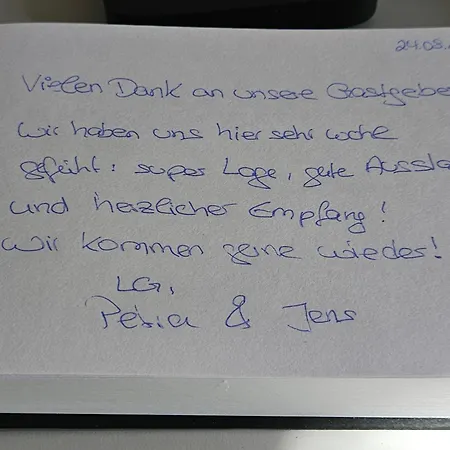 24.08.
Vielen Dank an unsere Gastgebe
Wir haben uns hier sehr wohl
gefühlt: super Lage, gute Aussta
und herzlicher Empfang!
Wir kommen gerne wieder!
LG,
Petra & Jens